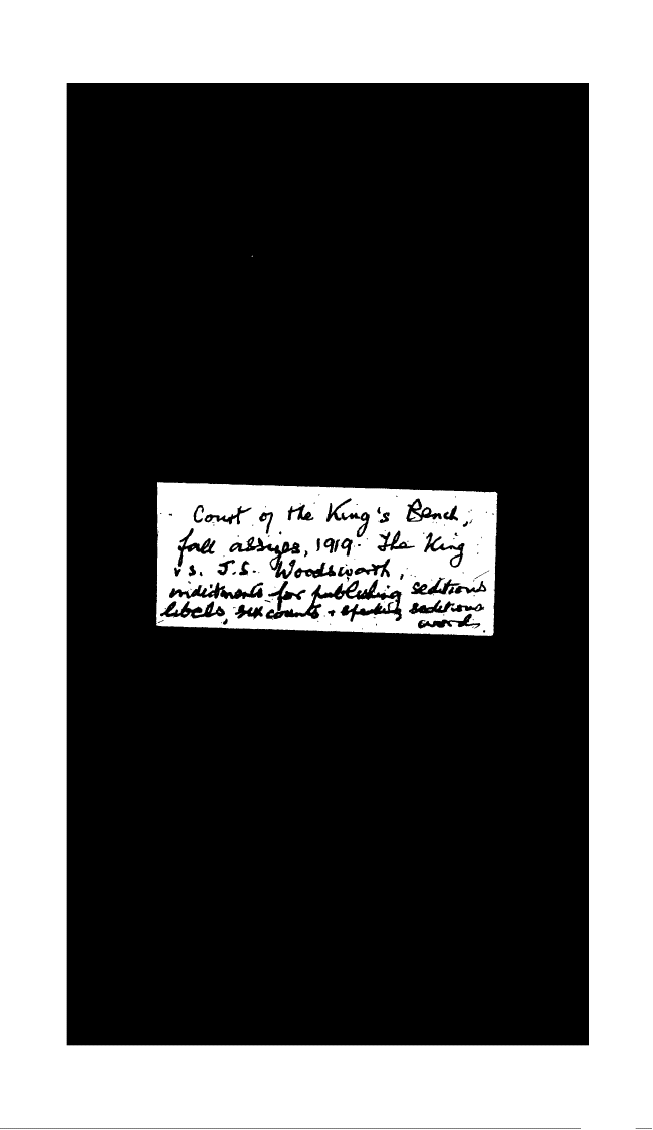 Court of the King's Bench,
fall assizes, 1919. The King
vs. J.S. Woodsworth,
indictments for publishing seditious
libels, six counts + speaking seditious
words.